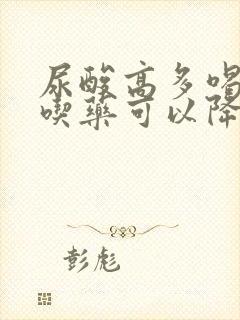 尿酸高多喝
喫藥可以降
彭彪